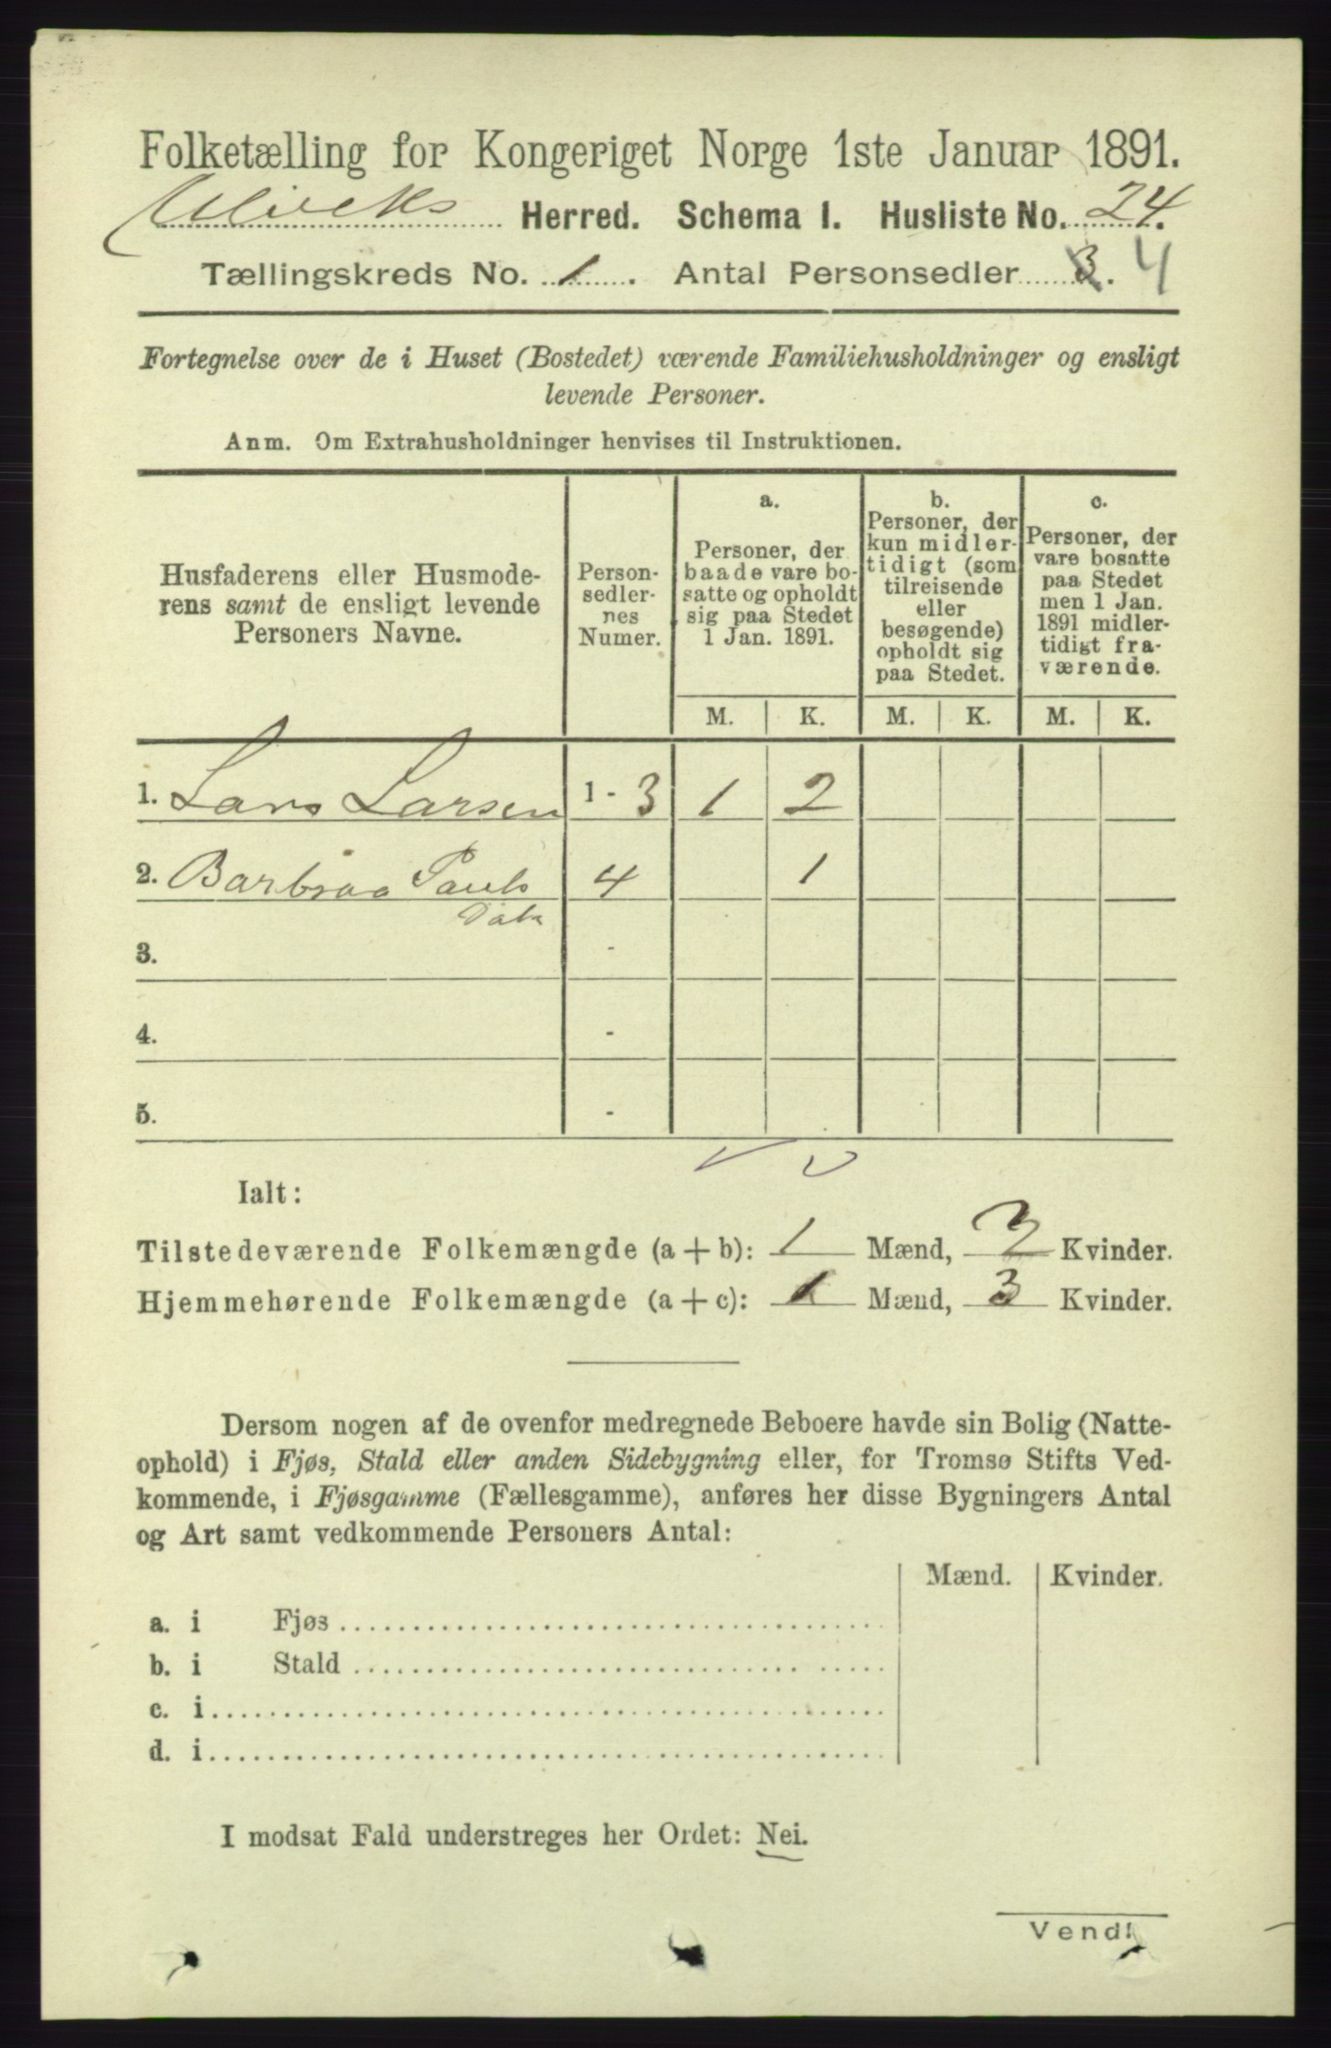 Folketælling for Kongeriget Norge 1ste Januar 1891.
Ulviks Herred. Schema I. Husliste No. 24.
Tællingskreds No. 1. Antal Personsedler 3. 4
Fortegnelse over de i Huset (Bostedet) værende Familiehusholdninger og ensligt
levende Personer.
Anm. Om Extrahusholdninger henvises til Instruktionen.
Husfaderens eller Husmode-
rens samt de ensligt levende
Personers Navne.
Person-
sedler-
nes
Numer.
a.
Personer, der
baade vare bo-
satte og opholdt
sig paa Stedet
1 Jan. 1891.
b.
Personer, der
kun midler-
tidigt (som
tilreisende
eller
besøgende)
opholdt sig
paa Stedet.
c.
Personer, der
vare bosatte
paa Stedet
men 1 Jan.
1891 midler-
tidigt fra-
værende.
M. K. M. K. M. K.
1. Lars Larsen 1 - 3 1 2
2. Barbraa Pauls 4 1
Datr
3. -
4. -
5. -
Ialt:
Tilstedeværende Folkemængde (a + b): 1 Mænd, 3 Kvinder.
Hjemmehørende Folkemængde (a + c): 1 Mænd, 3 Kvinder.
Dersom nogen af de ovenfor medregnede Beboere havde sin Bolig (Natte-
ophold) i Fjøs, Stald eller anden Sidebygning eller, for Tromsø Stifts Ved-
kommende, i Fjøsgamme (Fællesgamme), anføres her disse Bygningers Antal
og Art samt vedkommende Personers Antal:
Mænd. Kvinder.
a. i Fjøs
b. i Stald
c. i
d. i
I modsat Fald understreges her Ordet: Nei.
Vend!